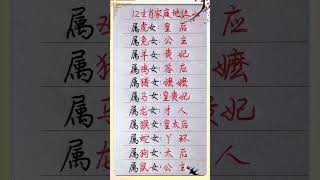 12生肖家庭地位
属虎女:皇后
属兔女:公主
属羊女:贵妃
属鸡女:答应
属猪女:嬷嬷
属马女:皇贵妃
属龙女:才人
属猴女:皇太后
属蛇女:丫环
属狗女:太后
属鼠女:公主